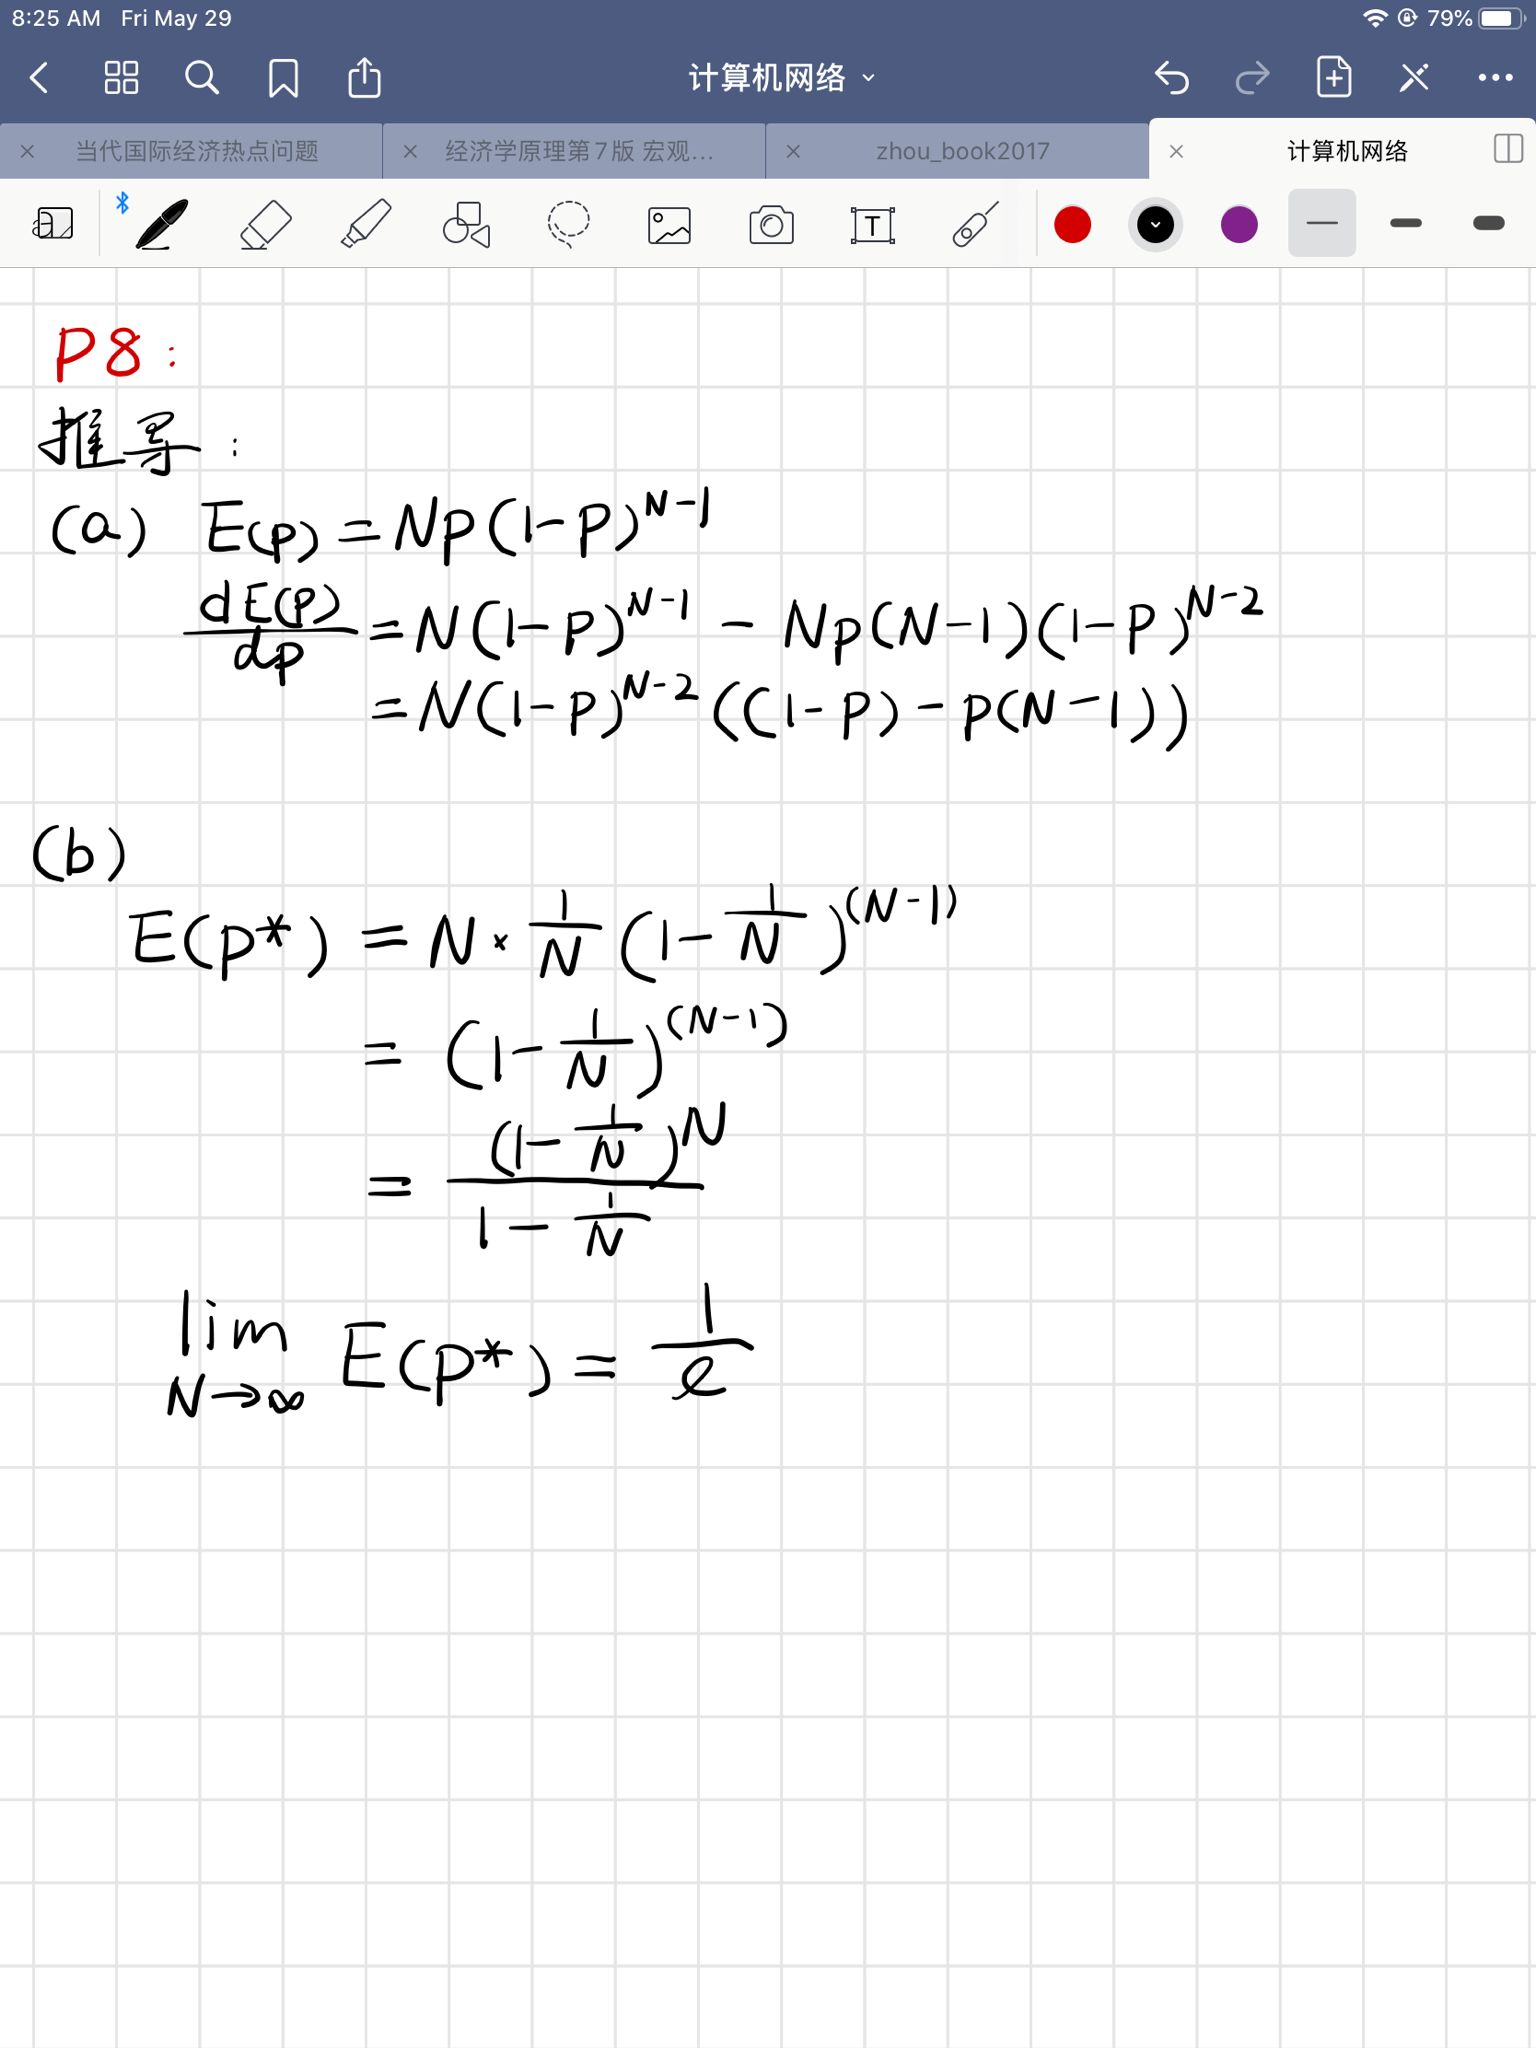 8:25 AM Fri May 29 79%
计算机网络
当代国际经济热点问题 经济学原理第7版 宏观... zhou_book2017 计算机网络
P8:
推导:
(a) E(p) = Np(1-p)^{N-1}
\frac{dE(p)}{dp} = N(1-p)^{N-1} - Np(N-1)(1-p)^{N-2}
= N(1-p)^{N-2}((1-p)-p(N-1))
(b)
E(p*) = N × \frac{1}{N}(1-\frac{1}{N})^{(N-1)}
= (1-\frac{1}{N})^{(N-1)}
= \frac{(1-\frac{1}{N})^{N}}{1-\frac{1}{N}}
\lim_{N→∞} E(p*) = \frac{1}{e}